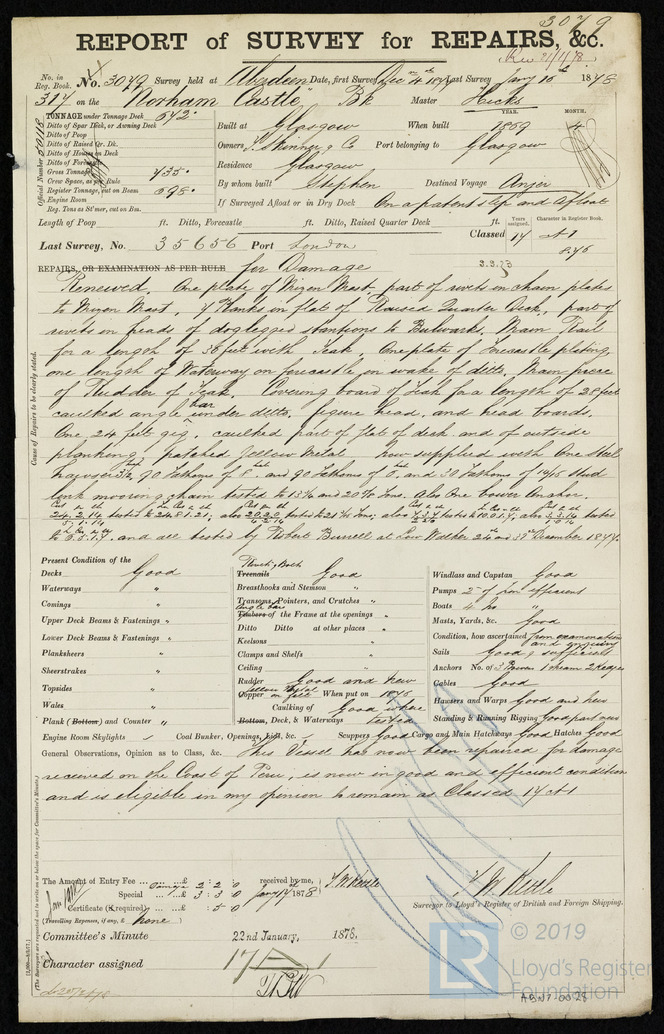 3049
REPORT of SURVEY for REPAIRS, &c.
Rec 21/1/78
No. in Reg. Book. No. 3049 Survey held at Aberdeen Date, first Survey Dec 4th 1877 Last Survey Jany 16th 1878
317 on the "Norham Castle" Bk Master Hicks
TONNAGE under Tonnage Deck 642
Ditto of Spar Deck, or Awning Deck
Ditto of Poop
Ditto of Raised Qr. Dk.
Ditto of Houses on Deck
Ditto of Forecastle
Gross Tonnage
Crew Space, as per Rule
Register Tonnage, cut on Beam 698
Engine Room
Reg. Tons as St'mer, cut on Bm.
Official Number
Built at Glasgow When built YEAR. 1869 MONTH. 4
Owners T. Skinner & Co Port belonging to Glasgow
Residence Glasgow
By whom built Stephen Destined Voyage Anjer
If Surveyed Afloat or in Dry Dock On a patent slip and Afloat
Length of Poop ft. Ditto, Forecastle ft. Ditto, Raised Quarter Deck ft.
Years assigned. Character in Register Book.
Last Survey, No. 35656 Port London Classed 17 A1
8.76
REPAIRS, OR EXAMINATION AS PER RULE for Damage 3.3.73
Renewed, One plate of Mizen Mast, part of rivets in chain plates
to Mizen Mast, 7 planks in flat of Raised Quarter Deck, part of
rivets in heads of doglegged stantions to Bulwarks, Main Rail
for a length of 36 feet with Teak, One plate of Forecastle plating,
one length of Waterway on forecastle in wake of ditto, Main piece
of Rudder of Teak, Covering board of Teak for a length of 28 feet
caulked angle bar under ditto, figure head, and head boards.
One 24 feet gig, caulked part of flat of deck and of outside
planking, patched Yellow Metal now supplied with One Steel
Hawser 3½, 90 Fathoms of 8 and 90 Fathoms of 6, and 30 Fathoms of 14/16 Stud
link mooring chain tested to 13¾ and 20⅝ Tons. Also One bower Anchor,
and all tested by Robert Burrell at Low Walker 24 and 31st December 1877.
Cause of Repairs to be clearly stated.
Present Condition of the
Decks Good
Waterways "
Comings "
Upper Deck Beams & Fastenings "
Lower Deck Beams & Fastenings "
Planksheers "
Sheerstrakes "
Topsides "
Wales "
Plank (Bottom) and Counter "
Treenails Good
Breasthooks and Stemson "
Transoms, Pointers, and Crutches "
angle bars
Timbers of the Frame at the openings "
Ditto Ditto at other places "
Keelsons "
Clamps and Shelfs "
Ceiling "
Rudder Good and New
Yellow Metal
Copper on felt When put on 1876
Caulking of Good where
Bottom, Deck, & Waterways tested
Windlass and Capstan Good
Pumps 2 of iron efficient
Boats 4 No "
Masts, Yards, &c. Good
Condition, how ascertained from examination and enquiry
Sails Good & sufficient
Anchors No. of 3 Bower 1 stream 2 Kedges
Cables Good
Hawsers and Warps Good and New
Standing & Running Rigging Good part new
Engine Room Skylights Coal Bunker, Openings, Lids, &c. Scuppers Good Cargo and Main Hatchways Good Hatches Good
General Observations, Opinion as to Class, &c. This Vessel has now been repaired for damage
received on the Coast of Peru, is now in good and efficient condition
and is eligible in my opinion to remain as Classed 17 A1
The Amount of Entry Fee ... £ 2 : 2 : 0 received by me,
Special ... £ 3 : 3 : 0 Jany 17th 1878
Certificate (if required) ... : 5 0
(Travelling Expenses, if any, £ None )
J. W. Kettle
J. W. Kettle
Surveyor to Lloyd's Register of British and Foreign Shipping.
Committee's Minute 22nd January, 1878.
Character assigned 17 A 1
(The Surveyors are requested not to write on or below the space for Committee's Minute.)
© 2019
LR Lloyd's Register Foundation